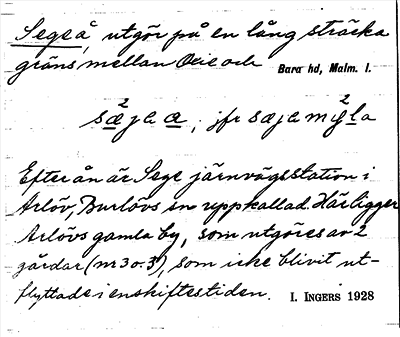 Segeå, utgör på en lång sträcka
gräns mellan Oxie och Bara hd, Malm. l.
sæ²jea, jfr sæjemy²lla
Efter ån är Sege järnvägsstation i
Arlöv, Burlövs sn uppkallad. Här ligger
Arlövs gamla by, som utgöres av 2
gårdar (nr 3 o. 3), som icke blivit ut-
flyttade i enskiftestiden. I. INGERS 1928